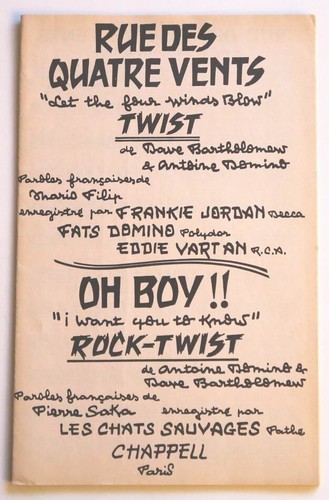 RUE DES
QUATRE VENTS
"Let the four winds Blow"
TWIST
de Dave Bartholomew
& Antoine Domino
Paroles françaises de
Mario Filip
enregistré par FRANKIE JORDAN Decca
FATS DOMINO Polydor
EDDIE VARTAN R.C.A.
OH BOY !!
"i want you to know"
ROCK-TWIST
de Antoine Domino &
Dave Bartholomew
Paroles françaises de
Pierre Saka enregistré par
LES CHATS SAUVAGES Pathe
CHAPPELL
Paris